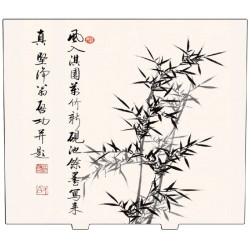 風入淇園萬竹新硯池餘墨寫來
真堅淨翁啟功并題